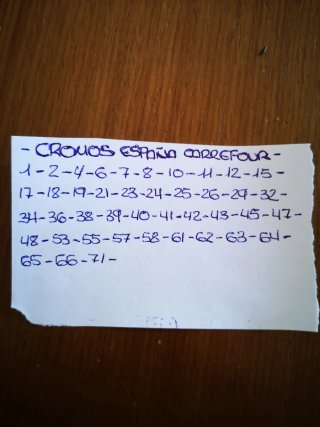 - CROMOS ESPAÑA CARREFOUR -
1 - 2 - 4 - 6 - 7 - 8 - 10 - 11 - 12 - 15 -
17 - 18 - 19 - 21 - 23 - 24 - 25 - 26 - 29 - 32 -
34 - 36 - 38 - 39 - 40 - 41 - 42 - 43 - 45 - 47 -
48 - 53 - 55 - 57 - 58 - 61 - 62 - 63 - 64 -
65 - 66 - 71 -